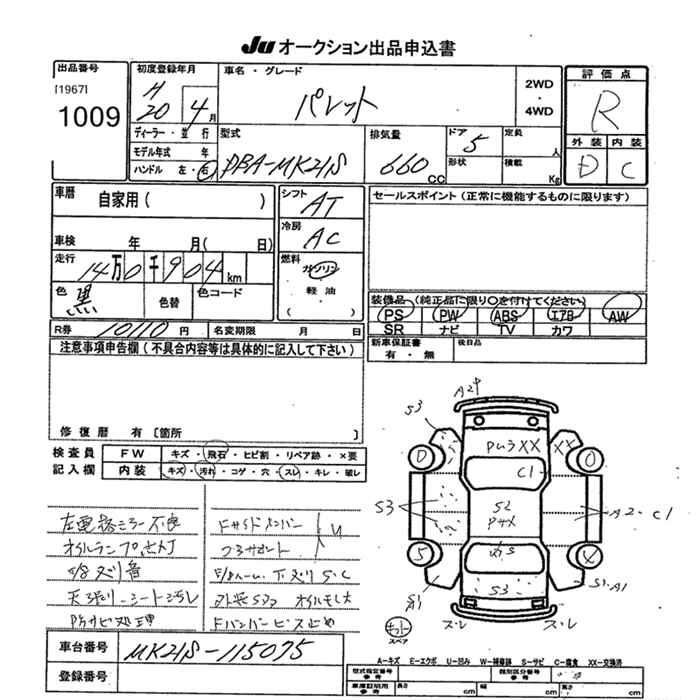 JU オークション出品申込書
出品番号 初度登録年月 車名・グレード 評価点
[1967] H 20 4月 パレット 2WD・4WD R
1009
ディーラー・並行 型式 排気量 ドア 定員 人 外装 内装
モデル年式 年 DBA-MK21S 660 CC 5 D C
ハンドル 左・右 形状 積載 Kg
車歴 自家用( ) シフト AT セールスポイント(正常に機能するものに限ります)
車検 年 月( 日) 冷房 AC
走行 14万0千904km 燃料 ガソリン
色 黒 色替 色コード 軽油
( )
装備品(純正品に限り○を付けてください)
PS PW ABS エアB AW
SR ナビ TV カワ
R券 10110円 名変期限 月 日
新車保証書 有・無 後日品
注意事項申告欄(不具合内容等は具体的に記入して下さい)
修復歴 有[箇所 ]
検査員 FW キズ・飛石・ヒビ割・リペア跡・×要
記入欄 内装 キズ・汚れ・コゲ・穴・スレ・キレ・破レ
左電格ミラー不良 FサイドメンバーU
オイルランプ点灯 コアサポート
異音
天張り・シート汚レ
Fバンパービス止め
A2 S3 D O S3 A2 C1 S A1 S1 A1 C1 S2 S3 XX
スレ スレ
スペア
車台番号 MK21S-115075
登録番号
A-キズ E-エクボ U-凹み W-補修跡 S-サビ C-腐食 XX-交換済
型式指定番号 参考 類別区分番号 参考
車庫証明用 参考 長さ cm 幅 cm 高さ cm